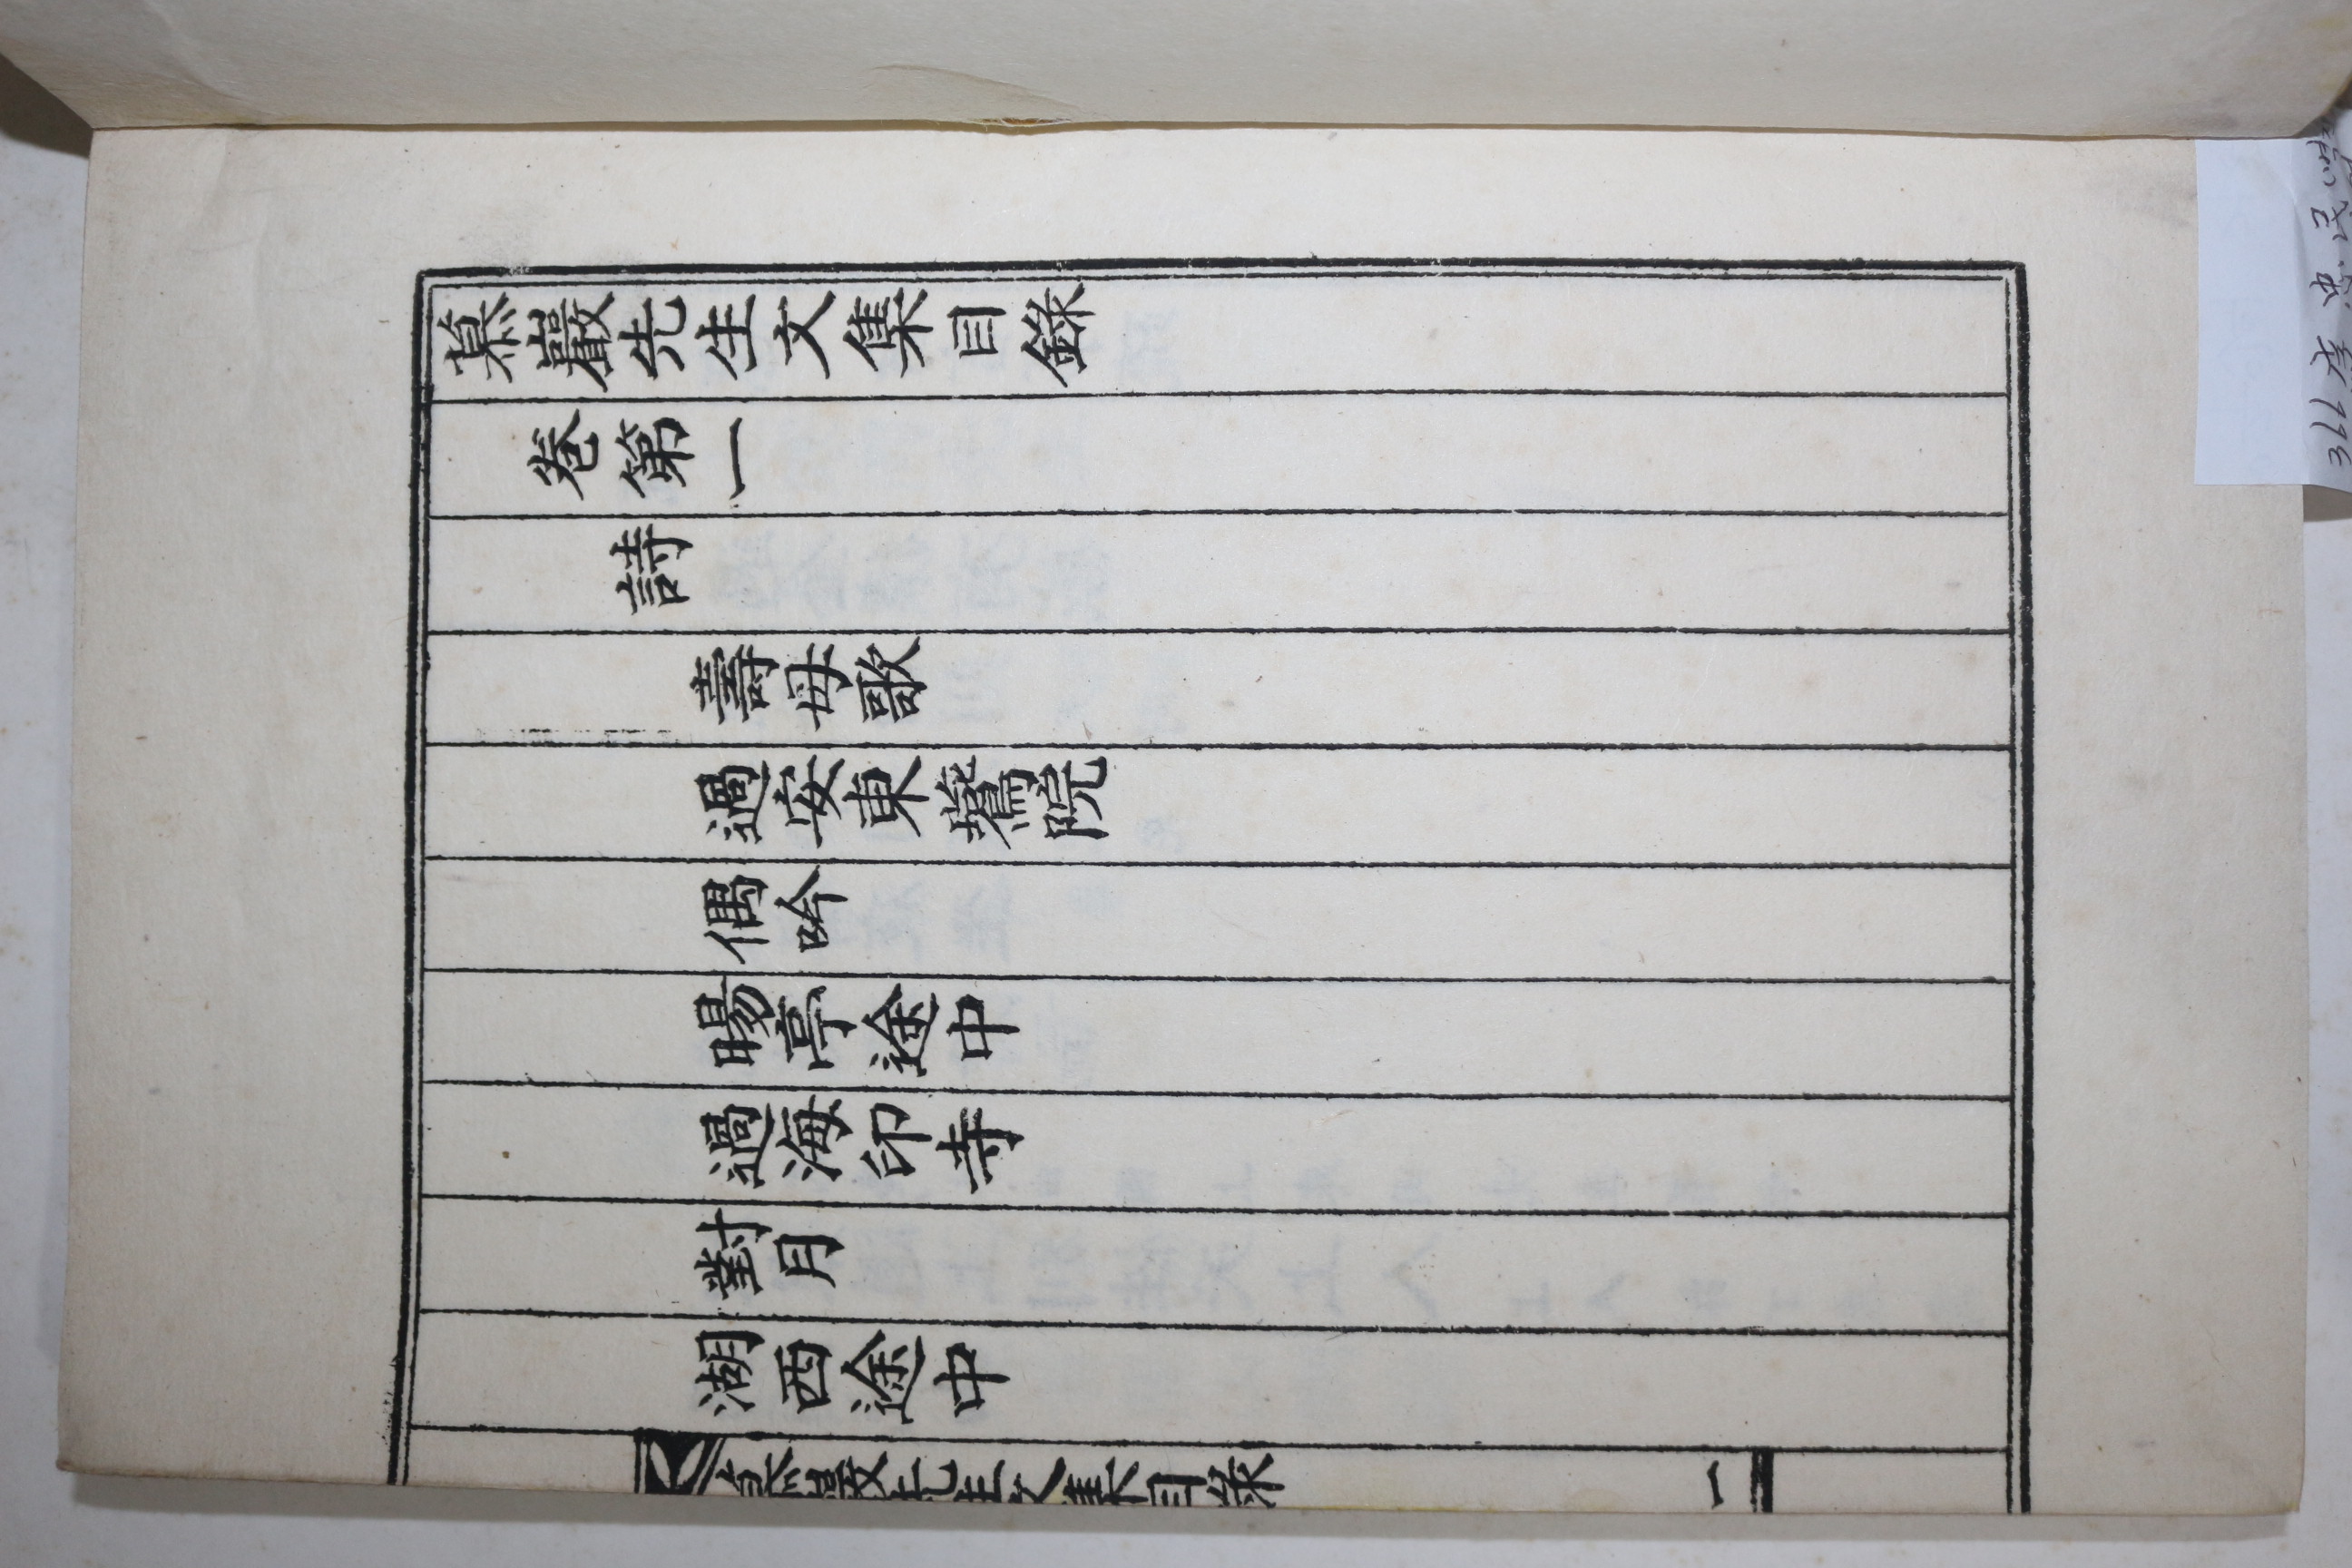 慕巖先生文集目錄
卷第一
詩
壽母歌
過安東鶿院
偶吟
暘亭途中
過海印寺
對月
湖西途中
慕巖先生文集目錄
一
366 李忠民